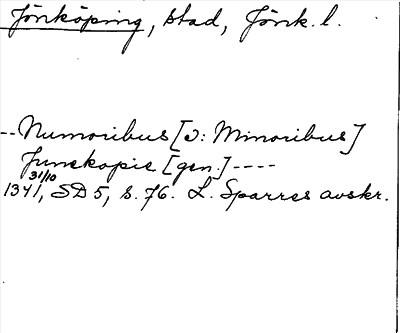 Jönköping, stad, Jönk. l.
--Numoribus [ɔ: Minoribus]
Junekopie [gen.] ----
31/10
1341, SD 5, s. 76. L. Sparres avskr.